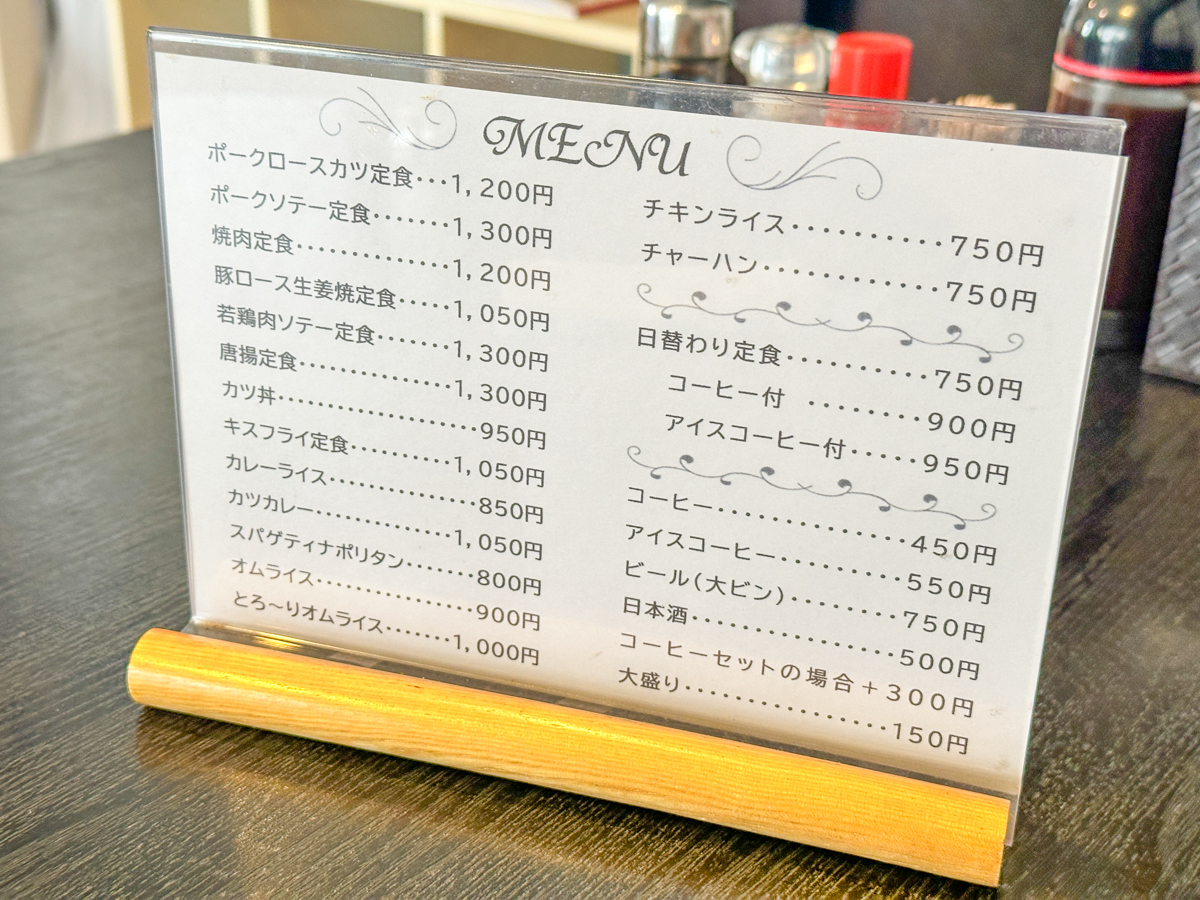 MENU
ポークロースカツ定食･･･1,200円
ポークソテー定食･･･････1,300円
焼肉定食･････････････1,200円
豚ロース生姜焼定食･････1,050円
若鶏肉ソテー定食･･･････1,300円
唐揚定食･････････････1,300円
カツ丼･････････････････950円
キスフライ定食･････････1,050円
カレーライス････････････850円
カツカレー････････････1,050円
スパゲティナポリタン･･･････800円
オムライス･･････････････900円
とろ～りオムライス･･･････1,000円
チキンライス･･････････750円
チャーハン････････････750円
日替わり定食･････････750円
コーヒー付 ････････900円
アイスコーヒー付･････950円
コーヒー････････････450円
アイスコーヒー････････550円
ビール(大ビン)････････750円
日本酒･････････････500円
コーヒーセットの場合＋300円
大盛り･･･････････････150円